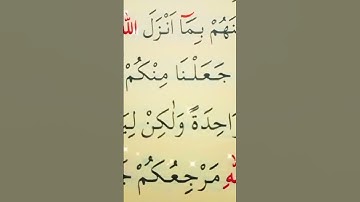 بِمَٓا اَنْزَلَ اللّٰ
جَعَلْنَا مِنْكُمْ
وَاحِدَةً وَلٰكِنْ
مَرْجِعُكُمْ